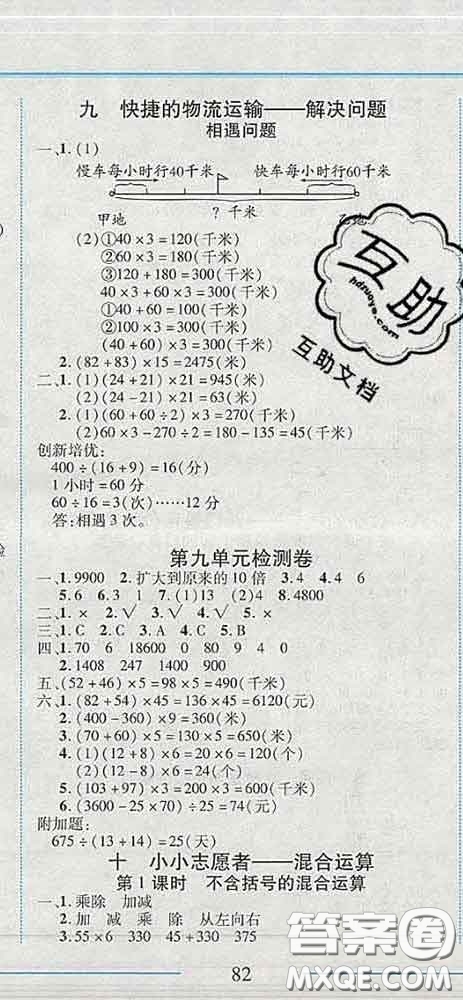 九 快捷的物流运输——解决问题
相遇问题
一、1. (1)
慢车每小时行40千米 快车每小时行60千米
? 千米
甲地 乙地
(2)①40×3=120(千米)
②60×3=180(千米)
③120+180=300(千米)
40×3+60×3=300(千米)
①40+60=100(千米)
②100×3=300(千米)
(40+60)×3=300(千米)
2. (82+83)×15=2475(米)
二、1. (1)(24+21)×21=945(米)
(2)(24-21)×21=63(米)
2. (1)(60+60÷2)×3=270(千米)
(2)60×3-270÷2=180-135=45(千米)
创新培优:
400÷(16+9)=16(分)
1小时=60分
60÷16=3(次)……12分
答:相遇3次。
第九单元检测卷
一、1. 9900 2. 扩大到原来的10倍 3. 4 4. 6
5. 6 6. 3 1 7. (1)13 (2)4 8. 4800
二、1. × 2. √ 3. √ 4. √
三、1. C 2. C 3. A 4. C 5. B
四、1. 70 6 18600 0 80 9 4 0
2. 1408 247 1400 900
五、(52+46)×5=98×5=490(千米)
六、1. (82+54)×45=136×45=6120(元)
2. (400-360)×9=360(米)
3. (70+60)×5=130×5=650(米)
4. (1)(12+8)×6=20×6=120(个)
(2)(12-8)×6=4×6=24(个)
5. (103+97)×3=200×3=600(千米)
6. (3600-25×70)÷25=74(米)
附加题:
675÷(13+14)=25(天)
十 小小志愿者——混合运算
第1课时 不含括号的混合运算
一、1. 乘除 加减
2. 加 减 乘 除 从左向右
82
互助
hdzuoye.com
互助文档
答案圈
MXQE.COM